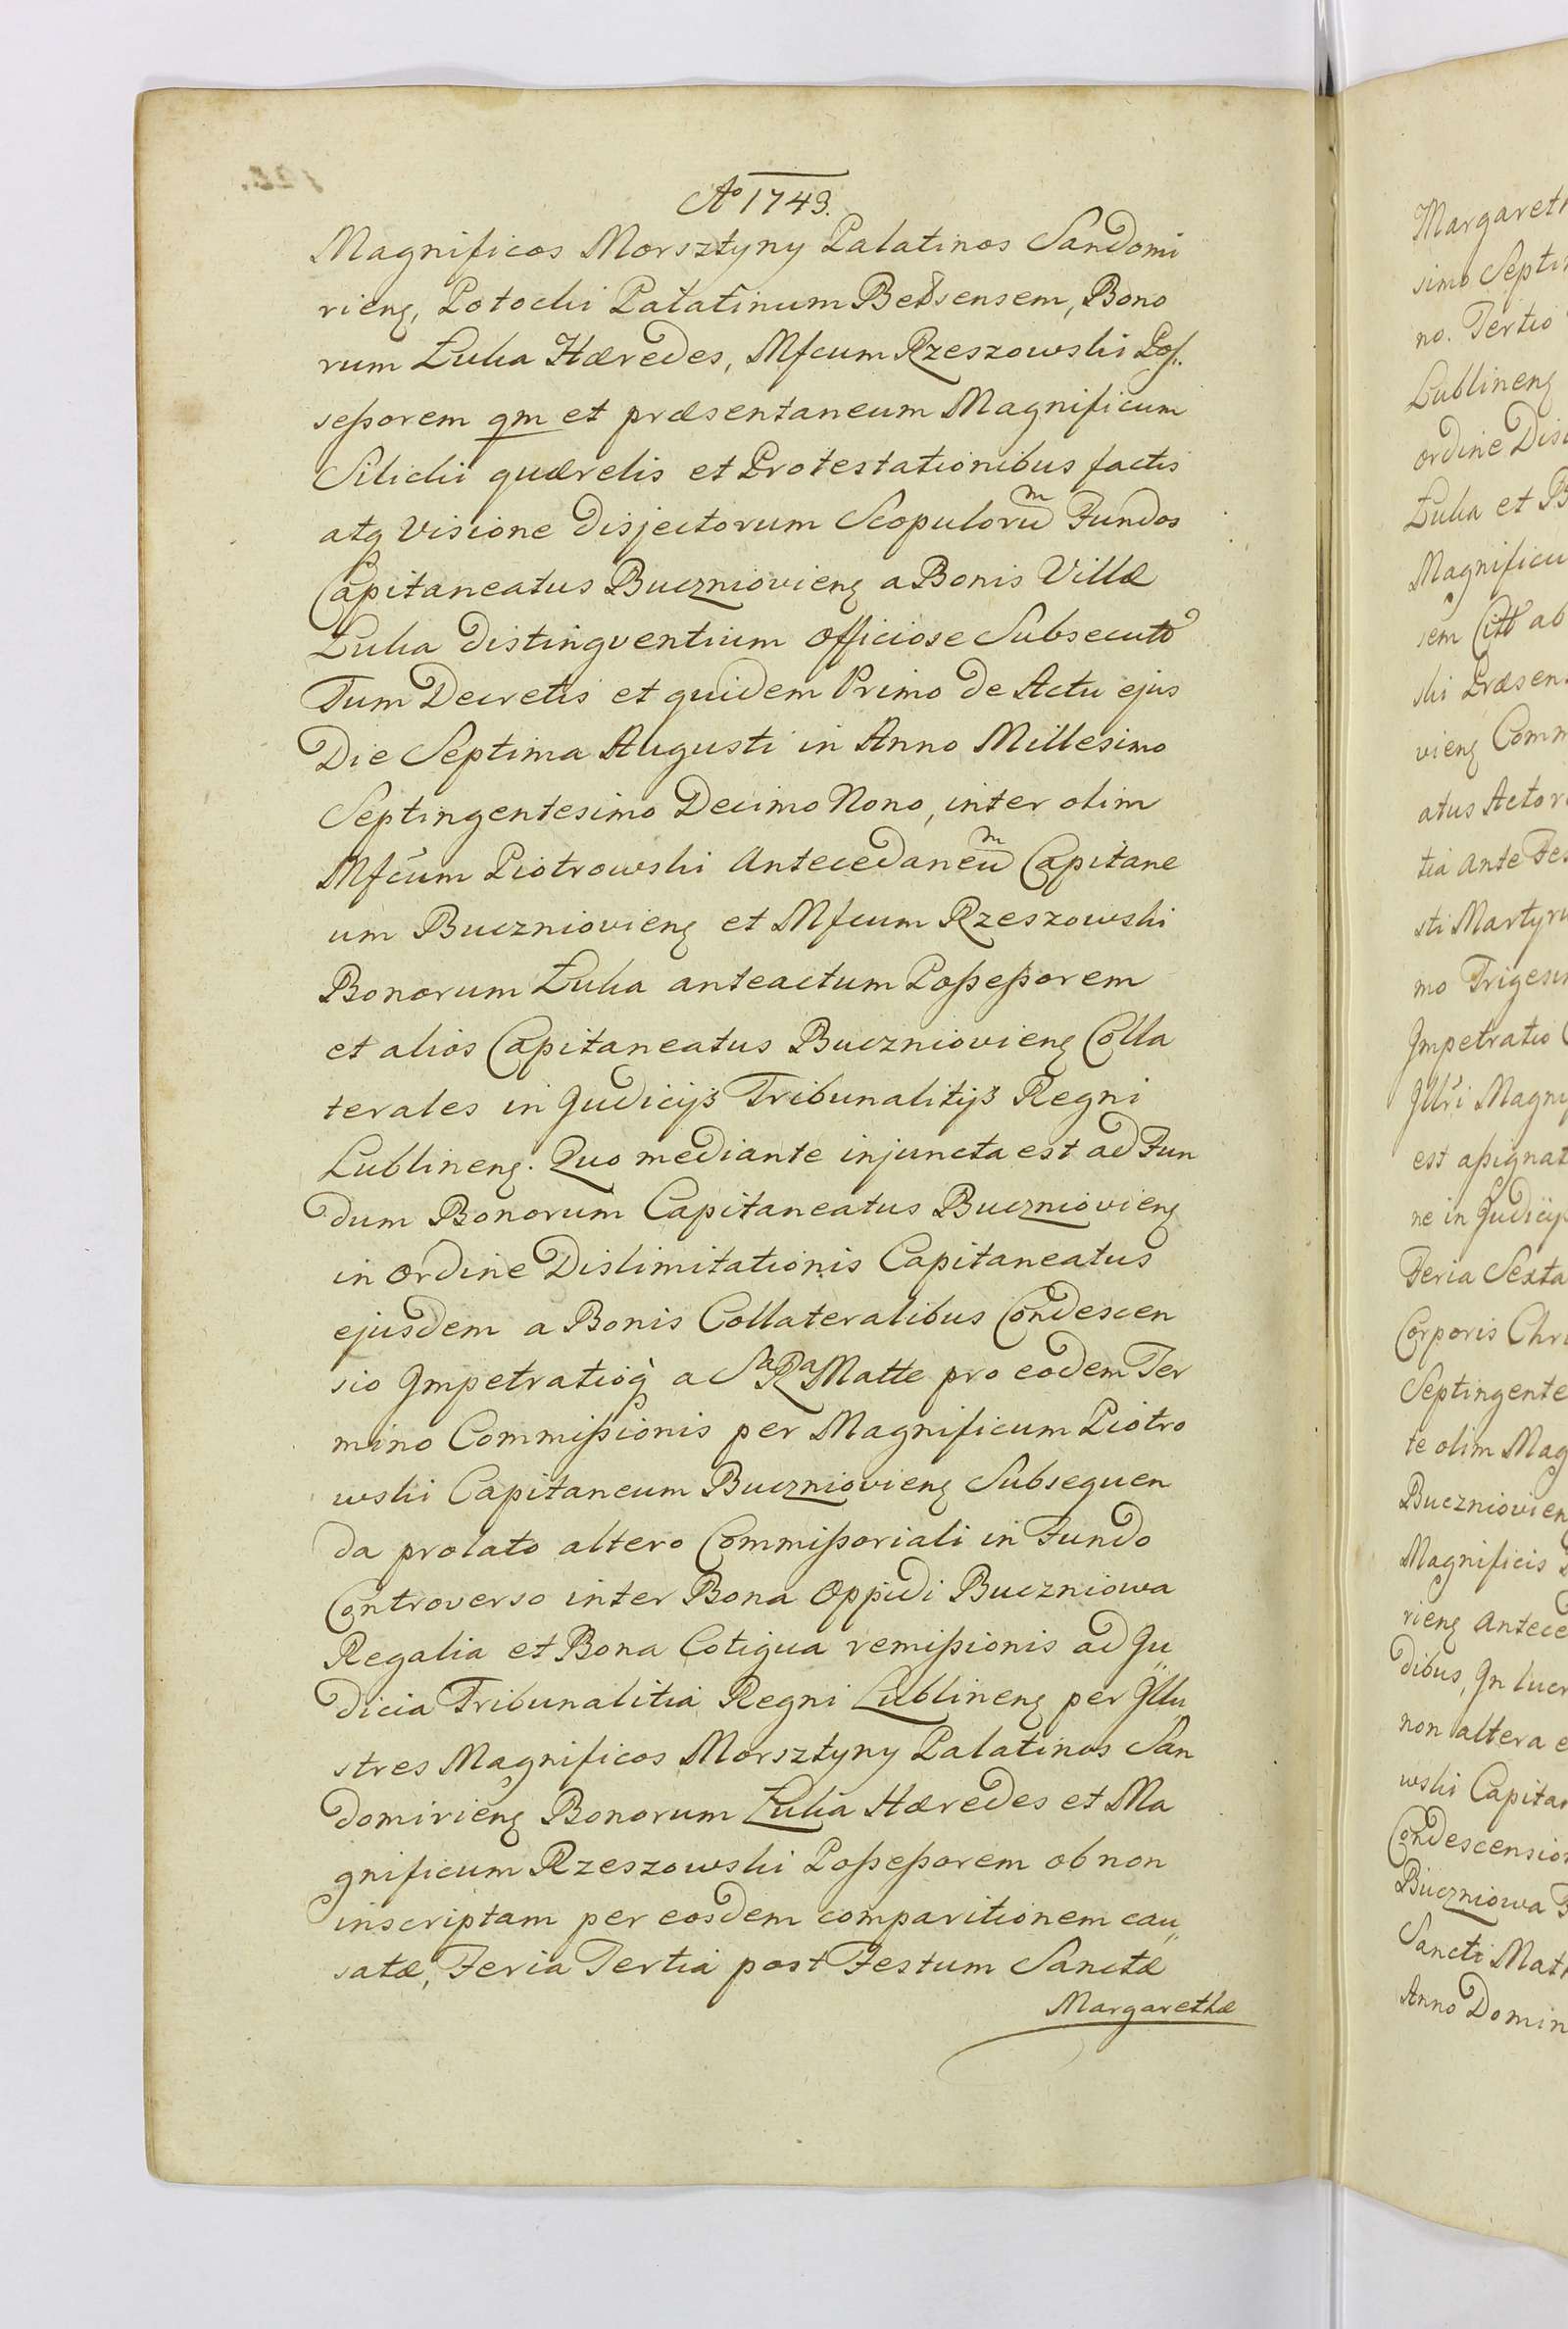 Ao 1743.
Magnificos Morsztyny Palatinos Sandomi
rieng, Potocki Palatinum Belzensem, Bono
rum Łuka Hæredes, Mfcum Rzeszowski Pos„
sessorem qm et præsentaneum Magnificum
Silicki quærelis et Protestationibus factis
atq Visione disjectorum Scopulorum Fundos
Capitaneatus Buczniovieng a Bonis Villæ
Łuka distingventium officiose Subsecuto
Tum Decretis et quidem Primo de Actu ejus
Die Septima Augusti in Anno Millesimo
Septingentesimo Decimo Nono, inter olim
Mfcum Piotrowski Antecedaneum Capitane
um Buczniovieng et Mfcum Rzeszowski
Bonorum Łuka anteactum Possessorem
et alios Capitaneatus Buczniovieng Colla
terales in Judicijs Tribunalitijs Regni
Lublineng. Quo mediante injuncta est ad Fun
dum Bonorum Capitaneatus Buczniovieng
in ordine Dislimitationis Capitaneatus
ejusdem a Bonis Collateralibus Condescen
sio Jmpetratioq a Sa Ra Matte pro eodem Ter
mino Commissionis per Magnificum Piotro
wski Capitaneum Buczniovieng Subsequen
da prolato altero Commissoriali in Fundo
Controverso inter Bona Oppidi Buczniowa
Regalia et Bona Cotigua remissionis ad Ju„
dicia Tribunalitia Regni Lublineng per Jllu„
stres Magnificos Morsztyny Palatinos San
domirieng Bonorum Łuka Hæredes et Ma
gnificum Rzeszowski Possessorem ob non
inscriptam per eosdem comparitionem cau„
satæ, Feria Tertia post Festum Sanctæ
Margarethæ
Margareth
simo Septin
no. Tertio
Lublineng
ordine Disl
Łuka et B
Magnificu
sem Citt ab
ski Præsen
vieng Comm
atus Actor
tia Ante Fes
sti Martyru
mo Trigesi
Jmpetratio C
Jllri Magni
est assignat
ne in Judicijs
Feria Sexta
Corporis Chri
Septingente
te olim Mag
Buczniovien
Magnificis
rieng Antece
dibus, Jn lucr
non altera e
wski Capitan
Condescension
Buczniowa F
Sancti Math
Anno Domin